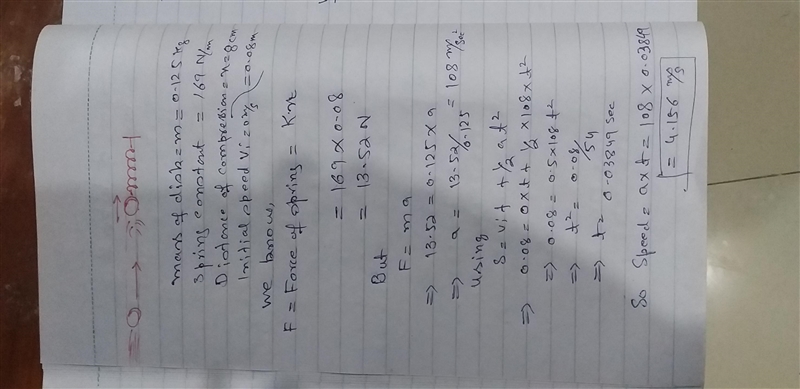 mass of disk = m = 0.125 kg
Spring constant = 169 N/m
Distance of compression = x = 8 cm
= 0.08m
Initial speed Vi = 0 m/s
We know,
F = Force of Spring = Kx
= 169 × 0.08
= 13.52 N
But
F = ma
⇒ 13.52 = 0.125 × a
⇒ a = 13.52/0.125 = 108 m/sec²
Using
S = Vit + 1/2 at²
⇒ 0.08 = 0×t + 1/2 × 108 × t²
⇒ 0.08 = 0.5×108 t²
⇒ t² = 0.08/54
⇒ t = 0.03849 sec
So Speed = a×t = 108 × 0.03849
= 4.156 m/s